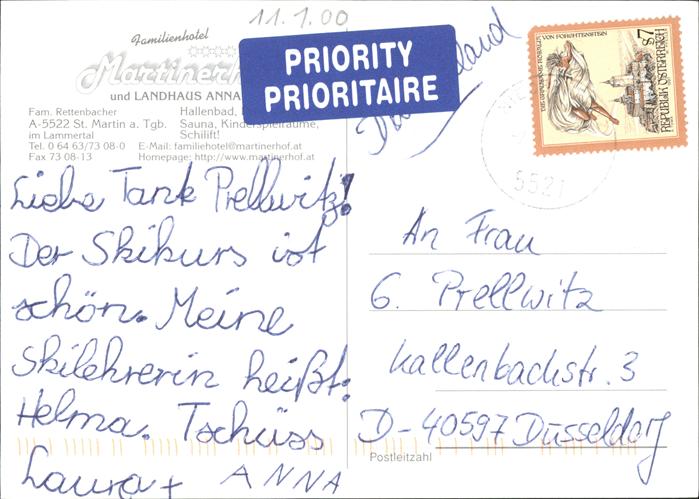 11.1.00
Familienhotel
Martinerh
und LANDHAUS ANNA
Fam. Rettenbacher
A-5522 St. Martin a. Tgb.
im Lammertal
Tel. 0 64 63/73 08-0
Fax 73 08-13
Hallenbad,
Sauna, Kinderspielräume,
Schilift!
E-Mail: familiehotel@martinerhof.at
Homepage: http://www.martinerhof.at
PRIORITY
PRIORITAIRE
DIE GRAUSAME ROSALIA VON FORCHTENSTEIN
S7
REPUBLIK ÖSTERREICH
5521
Liebe Tank Prellwitz!
Der Skikurs ist
schön. Meine
Skilehrerin heißt:
Helma. Tschüss
Laura + ANNA
An Frau
G. Prellwitz
Kallenbachstr. 3
D-40597 Düsseldorf
Postleitzahl